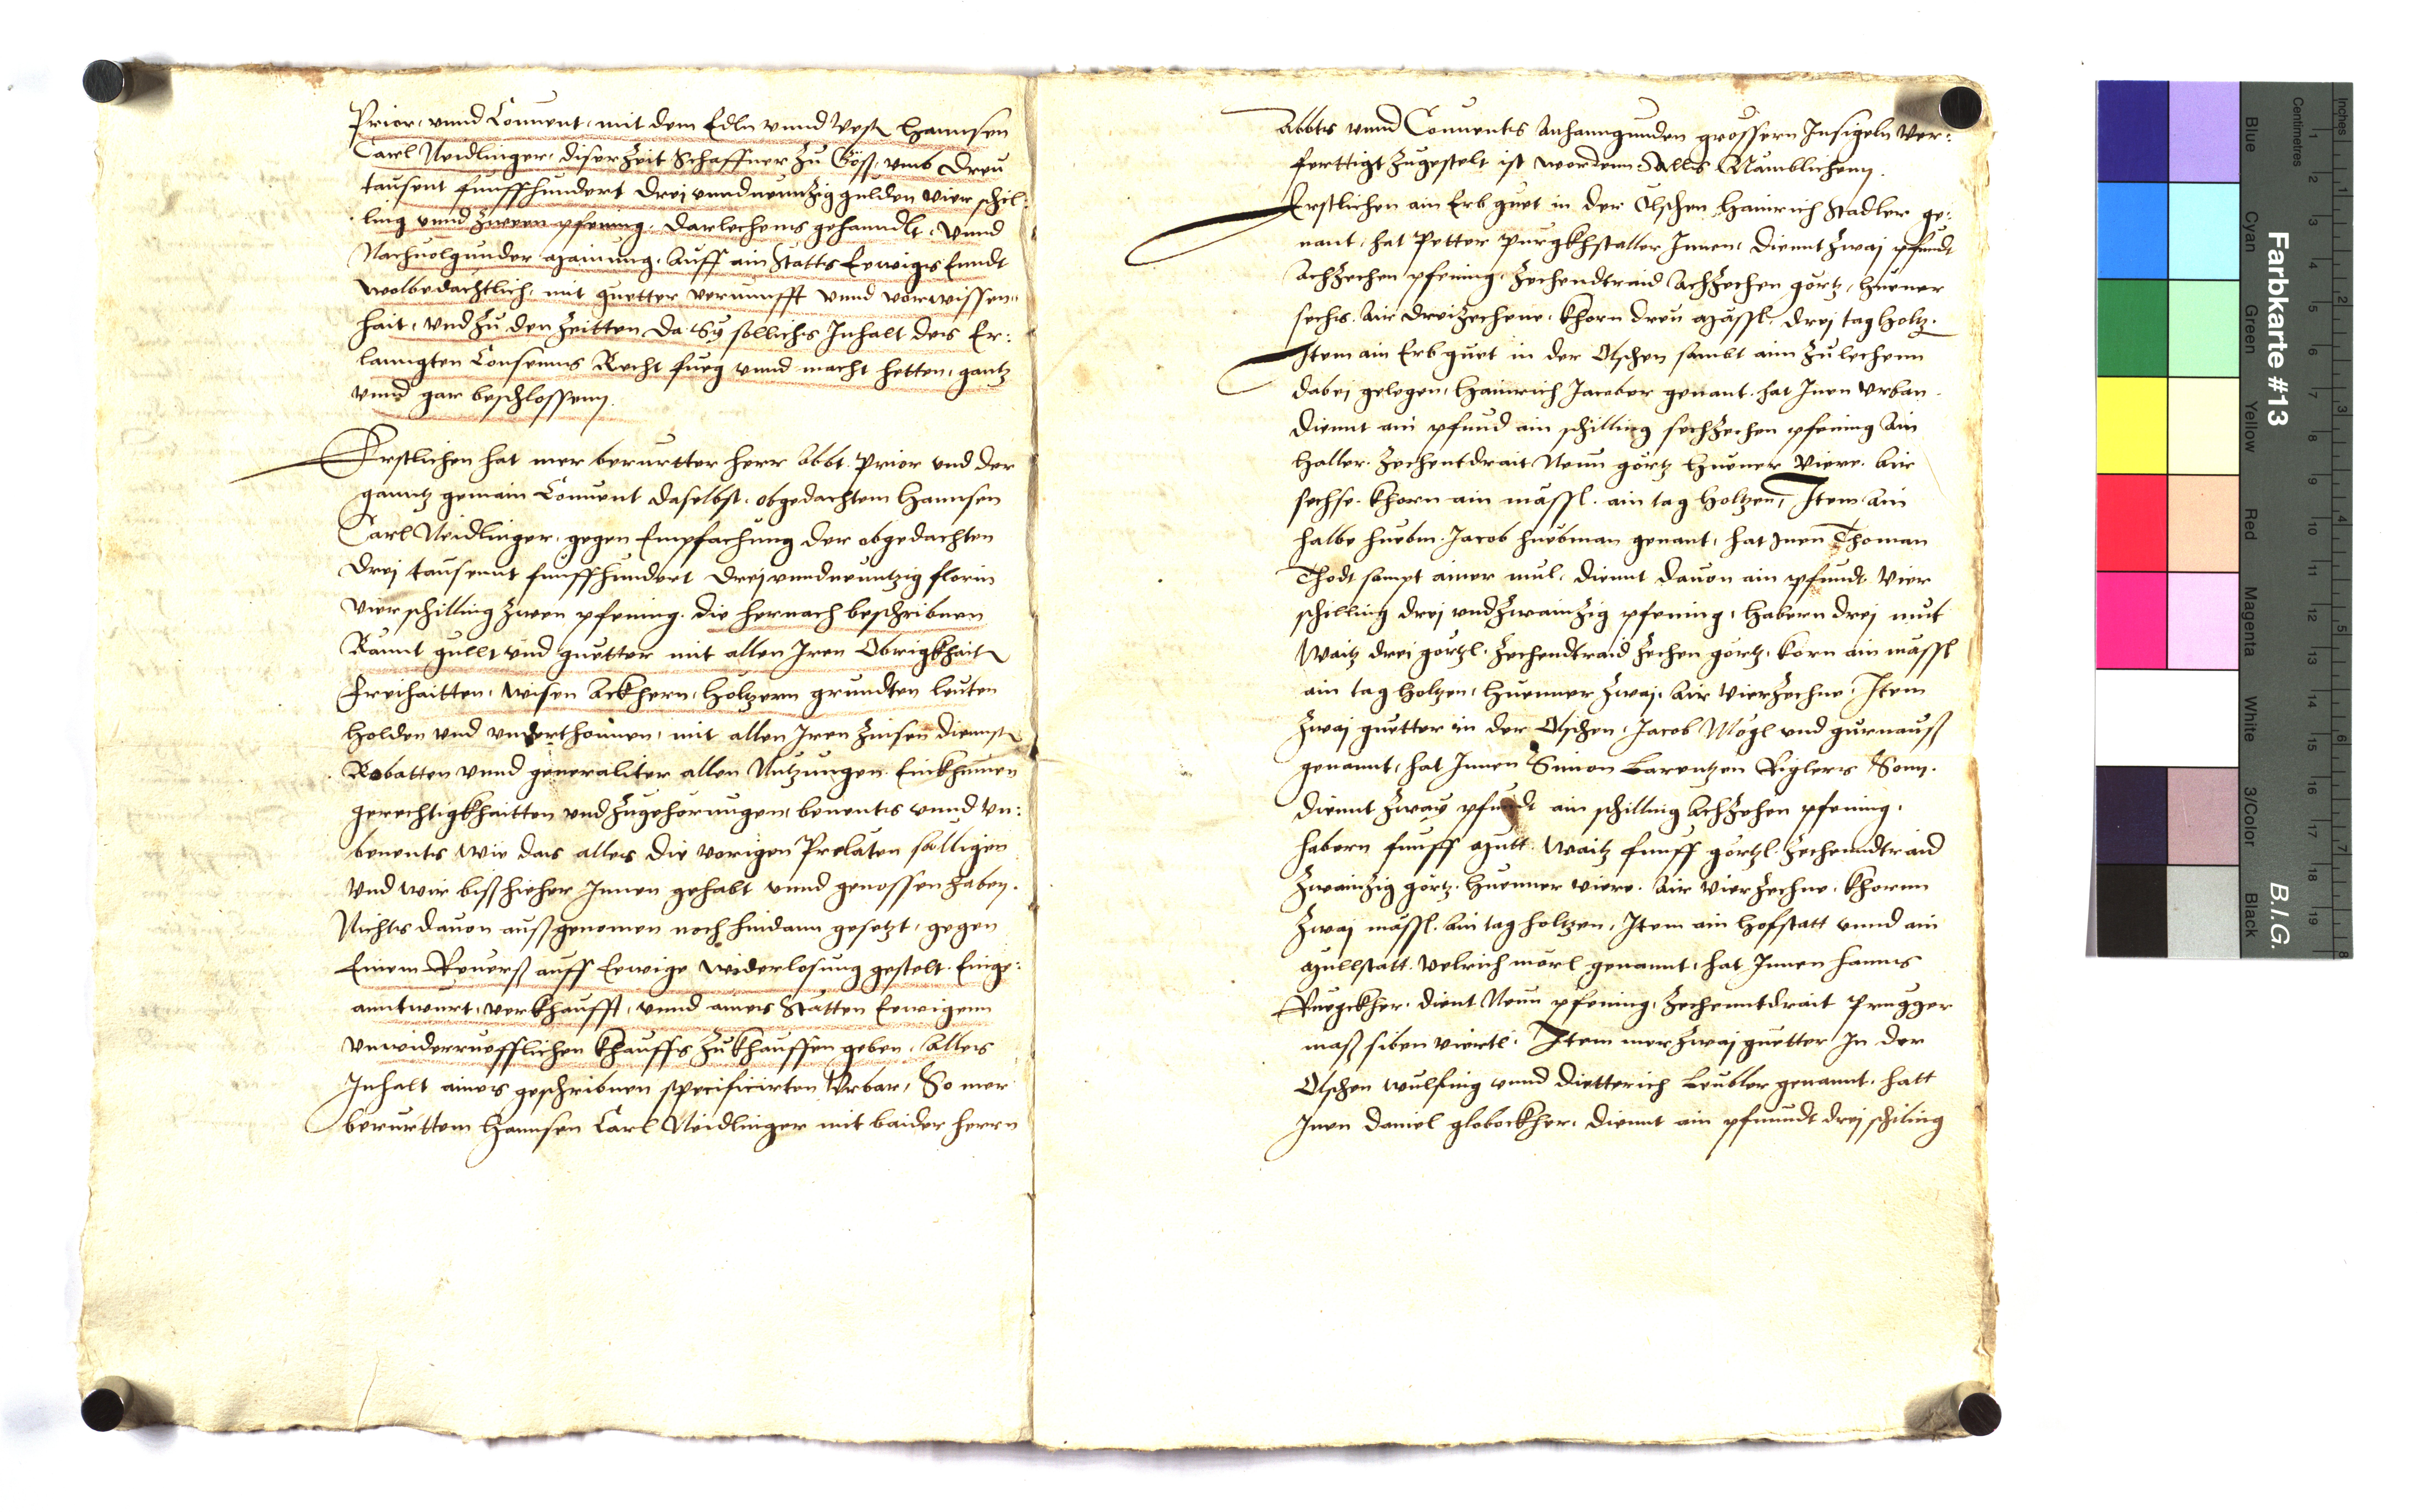 Prior, unnd Conuent, mit dem Edln unnd Vesten Hannsen
Carl Neidlinger, diser Zeit Schaffner zu Göss, umb Dreu
tausent funffhundert Drej unndneuntzig gulden vier schil:
ling unnd zween pfening, Darlechens gehanndlt, Unnd
Nachuolgunder mainung, Auff ain Statts Eewigs Enndt
wolbedachtlich, mit guetter vernunfft unnd vorwissen:
hait, und zu den Zeitten da Sy sollichs Inhalt des Er:
lanngten Consenns Recht fueg unnd macht hetten, gantz
unnd gar beschlossenn.
Erstlichen hat mer berurtter herr Abbt. Prior und der
ganntz gemain Conuent daselbst, obgedachtem Hannsen
Carl Neidlinger, gegen Empfachung der obgedachten
Drej tausennt funffhundert Drej unndneuntzig florin
Vier schilling zween pfening. die hernach beschribnen
Rännt gullt und guetter mit allen Iren Obrigkhaiten
Freihaitten, wisen Ackhern, Höltzern grundten leuten
holden und underthonnen, mit allen Iren Zinsen Diennsten
Robatten unnd generaliter allen Nutzungen. Einkhumen
gerechtigkhaitten und zugehörungen, benents unnd un:
benents wie das alles die vorigen Prelaten sälligen
Und wir biss hieher Innen gehabt unnd genossen haben.
Nichts dauon aussgenomen noch hindann gesetzt, gegen
Einem Reuerss auff Eewige widerlosung gestelt. Einge:
anntwurt, verkhaufft, unnd aines Stätten Eewigenn
Unwiderruefflichen khauffs zukhauffen geben. Alles
Inhalt aines geschribnen specificirten Urbar, So mer
berurttem Hannsen Carl Neidlinger mit baider herrn
Abbts unnd Conuents Anhanngunden grossern Insigeln ver:
ferttigt zugestelt ist wordenn Alls Nämblichenn.
Erstlichen ain Erb guet in der Olschen Hainrich Stadler ge:
nant, hat Petter Purgkhstaller Innen, diennt zwaj pfundt
Achzechen pfening, zechendtraid Achzechen görtz, huener
sechs. Air dreizechene, khorn dreu mässl. drej tag holtz.
Item ain Erb guet in der Olschen sambt aim zulechenn
dabej gelegen, Hainrich Jacober genant, hat Inen Urban.
diennt ain pfund ain schilling sechzechen pfening Ain
haller. zechentdrait Neun görtz huener viere. Air
sechse. khorn ain mässl. ain tag holtzen, Item Ain
halbe huebm. Jacob huebman genant, hat Inen Thoman
Thodt sampt ainer mul, diennt dauon ain pfundt vier
schilling drej undzwainzig pfening, habern drej mut
Waitz drei görtzl. zechendtraid zechen görtz, korn ain mässl
ain tag holtzen, huenner zwaj, Air vierzechne, Item
zwaj guetter in der Olschen, Jacob Mogl und gurnauss
genannt, hat Innen Simon Larentzen Riglers Sonn.
diennt zway pfundt ain schilling Achzehen pfening,
habern funff mutt. Waitz funff görtzl. zechenndtraid
zwainzig görtz. huenner viere. Air vierzechne, khornn
zwaj mässl. Ain tag holtzen, Item ain hofstatt unnd ain
mullstatt. Uelrich mörl genannt, hat Innen hanns
Ruegckher, dient Neun pfening, zechenntdrait Prugger
mass siben viertl. Item mer zwaj guetter In der
Olschen wulfing unnd dietterich Leubler genannt. hatt
Inen daniel globockher, diennt ain pfunndt drej schiling
Farbkarte #13
B.I.G.
Inches
Centimetres
Blue
Cyan
Green
Yellow
Red
Magenta
White
3/Color
Black